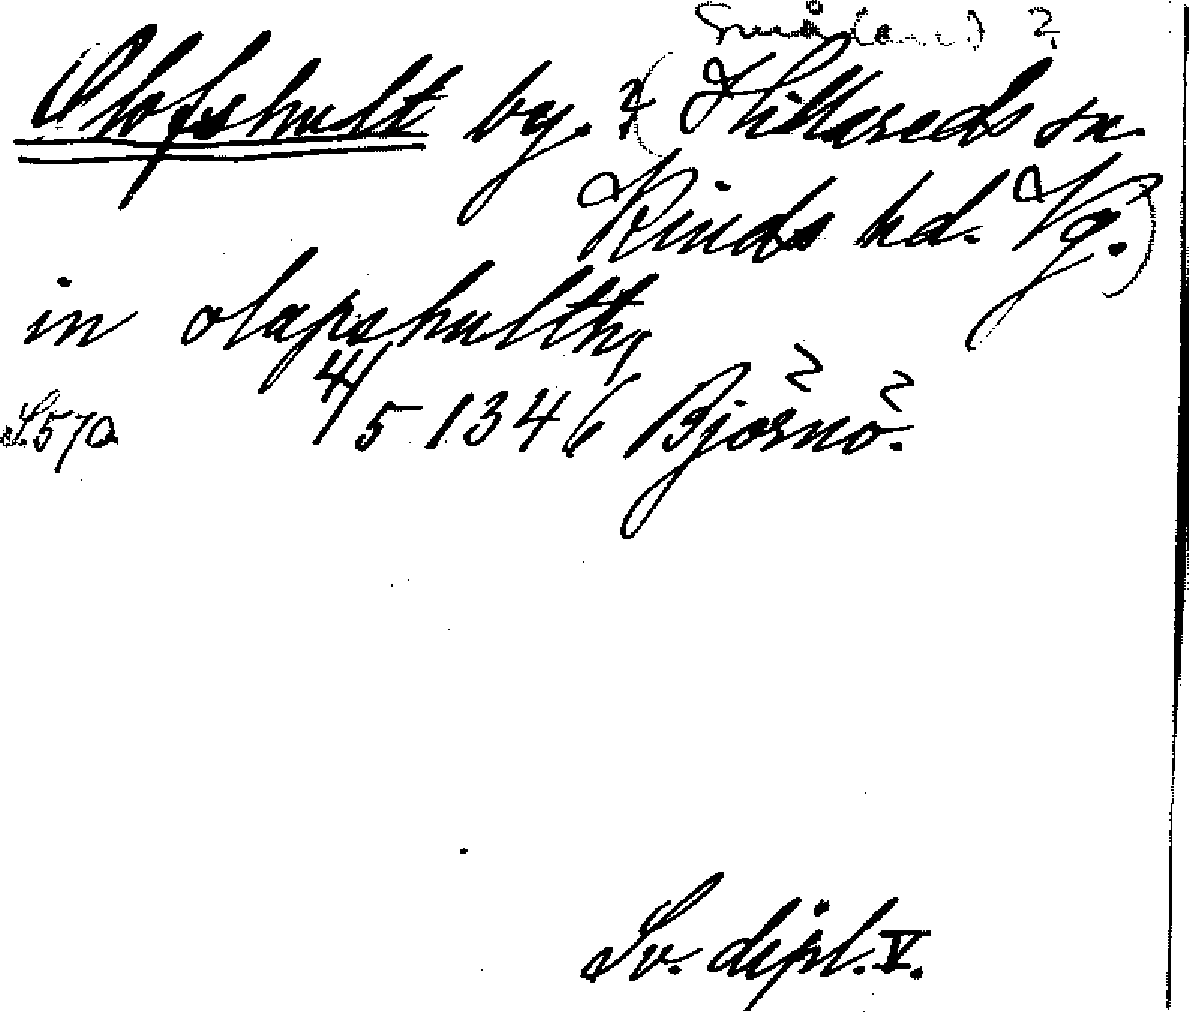 Småland ?
Olofshult by. ? (Hillareds sn.
Kinds hd. Vg.)
in olapshulth,
S. 570 4/5 1346 Björnö.
Sv. dipl. V.